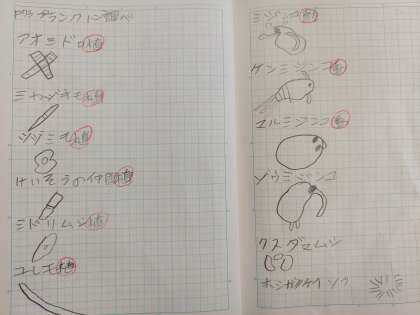 プランクトン調べ
アオミドロ 植
ミカヅキモ 植
ツヅミモ 植
けいそうの仲間 植
ミドリムシ 植
ユレモ 植
ミジンコ 動
ケンミジンコ 動
マルミジンコ 動
ゾウミジンコ
クスダマムシ
ホシガタケイソウ